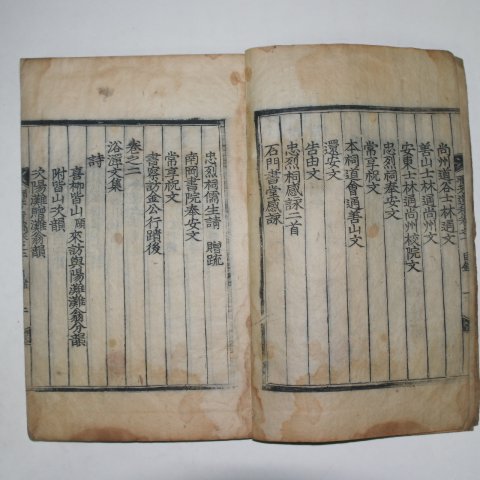 尚州道谷士林通文
善山士林通尚州文
安東士林通尚州校院文
忠烈祠奉安文
常享祝文
本祠道會通善山文
還安文
告由文
忠烈祠感詠二首
石門書堂感詠
忠烈祠儒生請 贈疏
南岡書院奉安文
常享祝文
書察訪金公行蹟後
卷之二
浴潭文集
詩
喜柳皆山 來訪與陽灘灘翁分韻
附皆山次韻
次陽灘贈灘翁韻
目錄